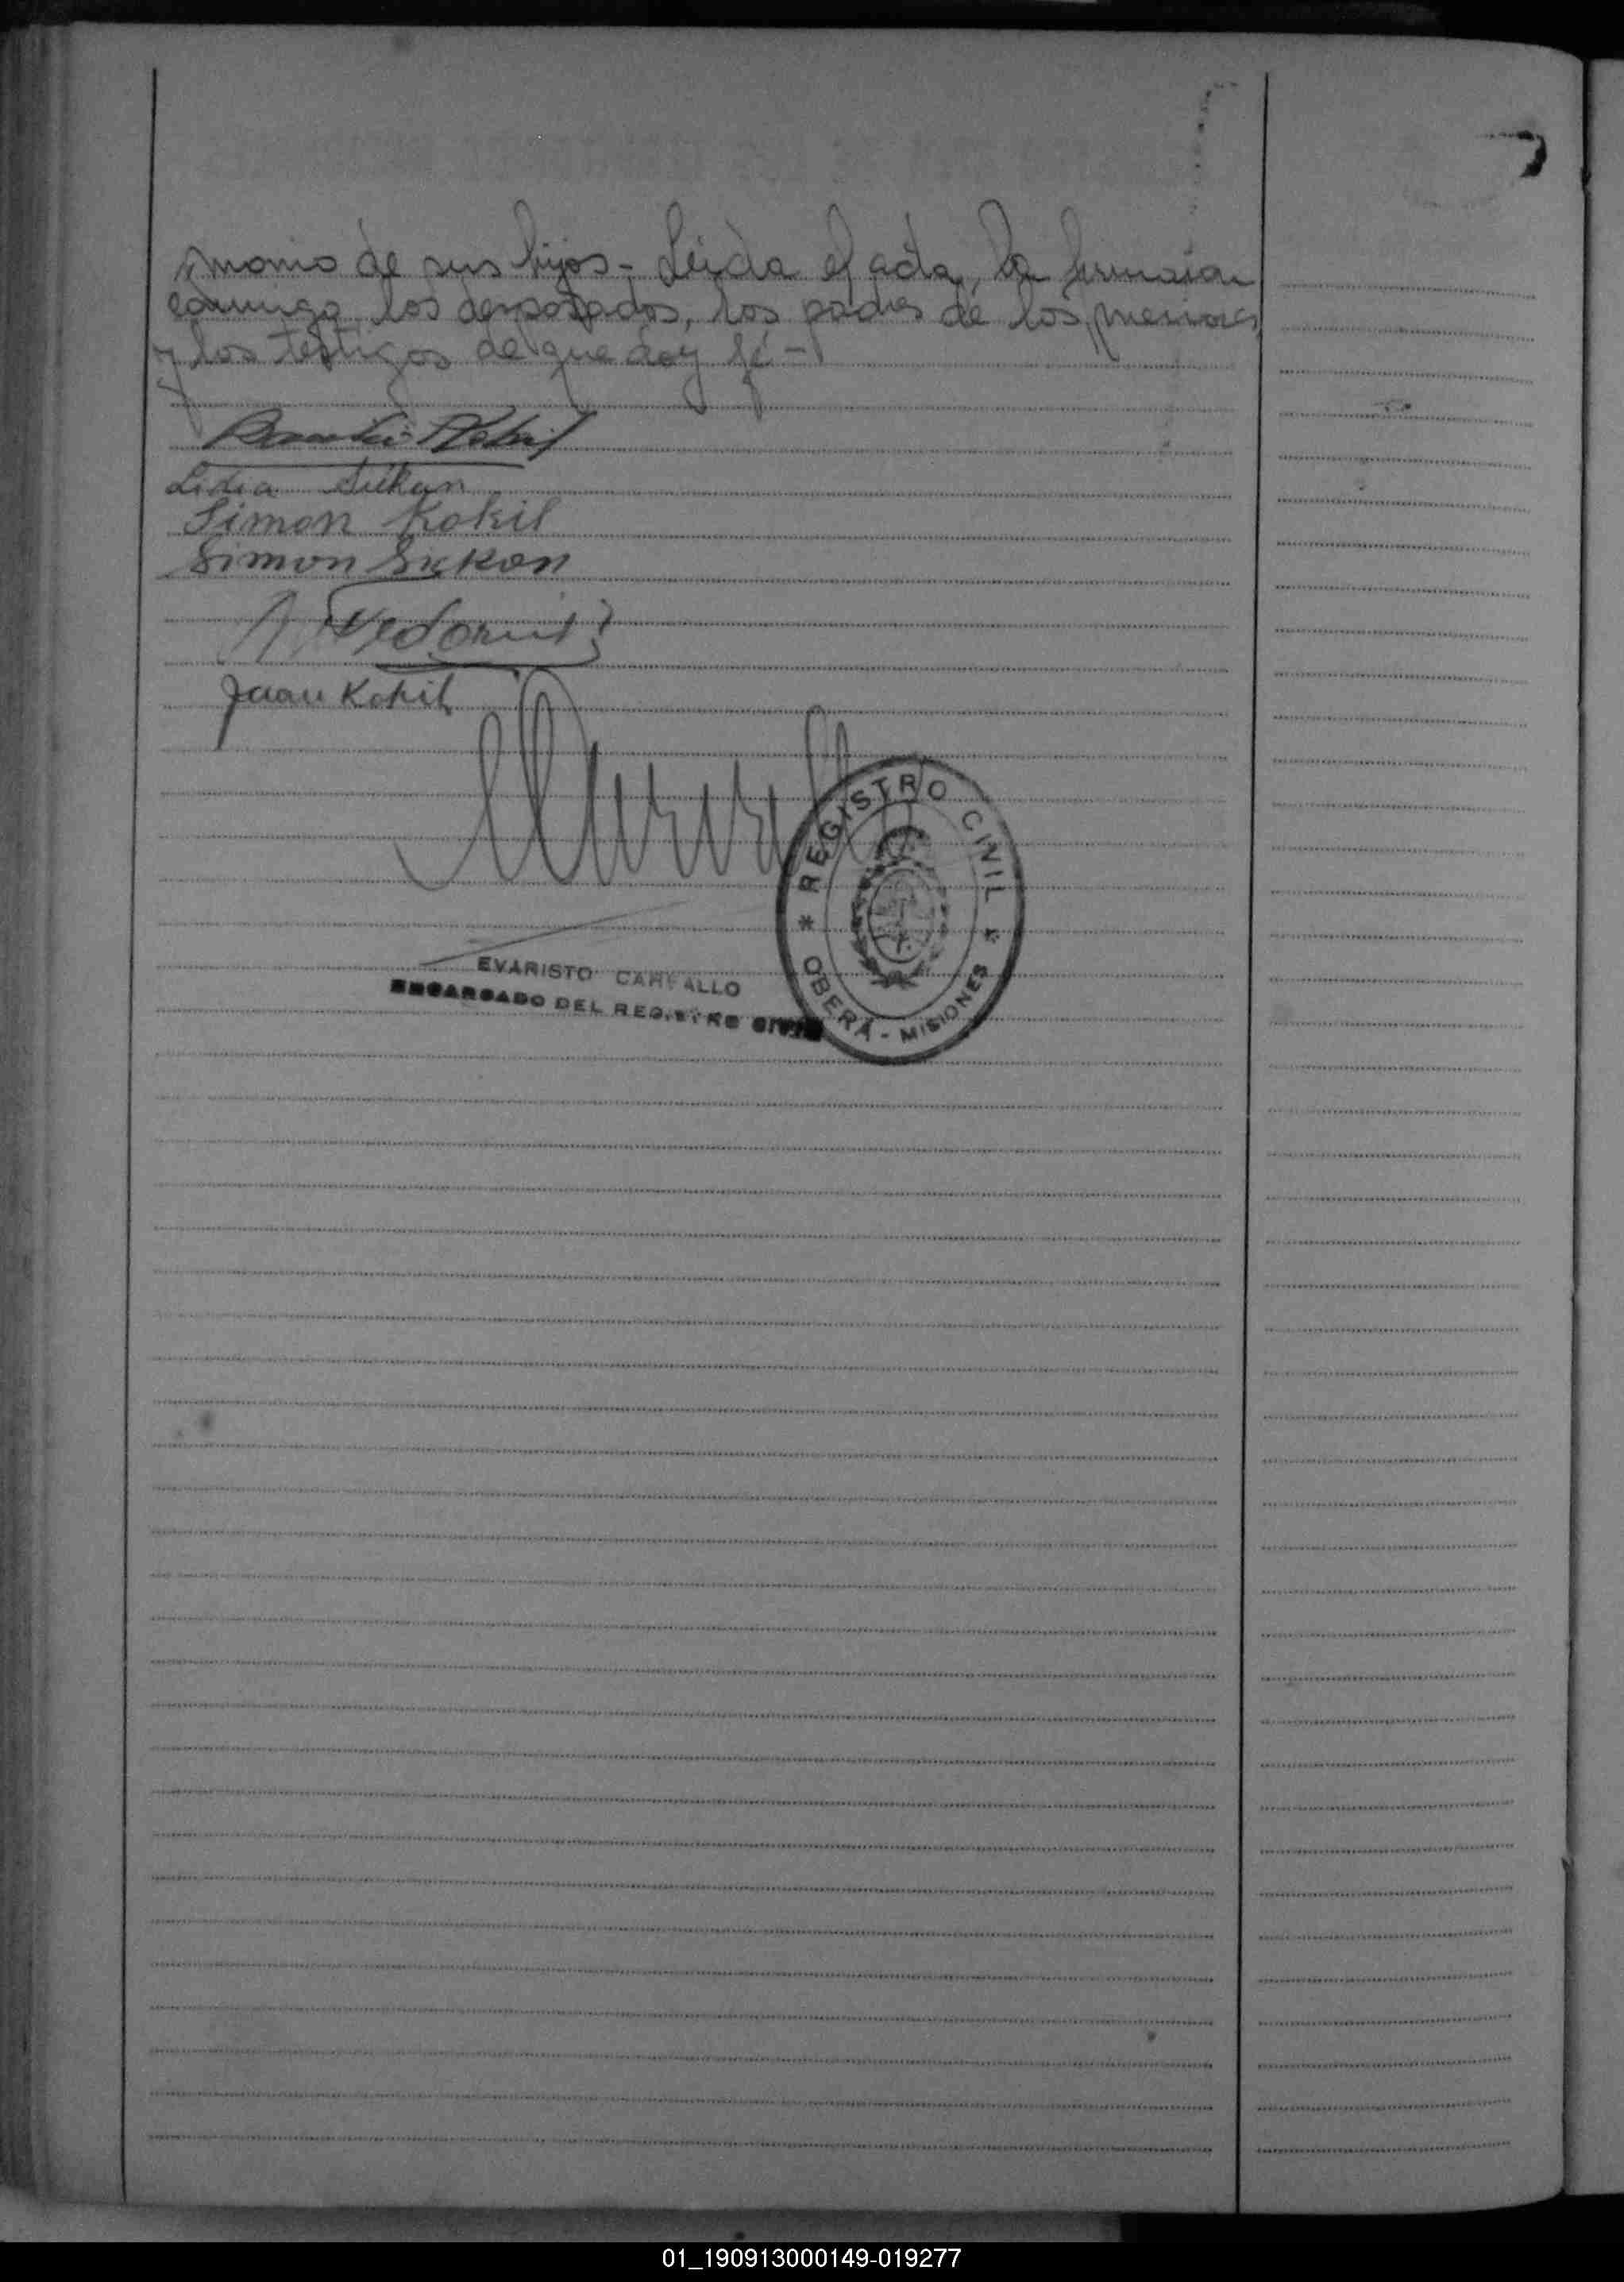 monio de sus hijos - Leida el acta, la firmaron
conmigo los desposados, los padres de los menores
y los testigos de que doy fé -
Kokil
Lidia Sukan
Simon Kokil
Simon Sukan
Juan Kokil
REGISTRO CIVIL
* *
OBERÁ - MISIONES
EVARISTO CARFALLO
ENCARGADO DEL REGISTRO CIVIL
01_190913000149-019277